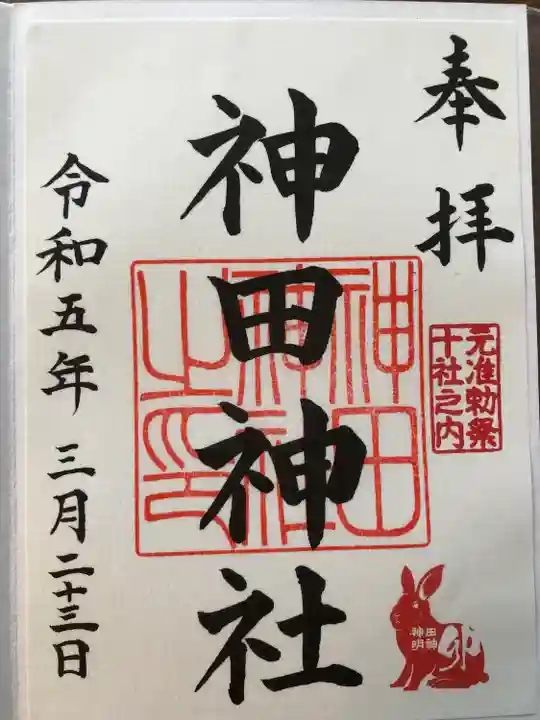 奉拝
元准勅祭
十社之内
神田神社
神田
神社
之印
神田
明神
卯
令和五年 三月二十三日